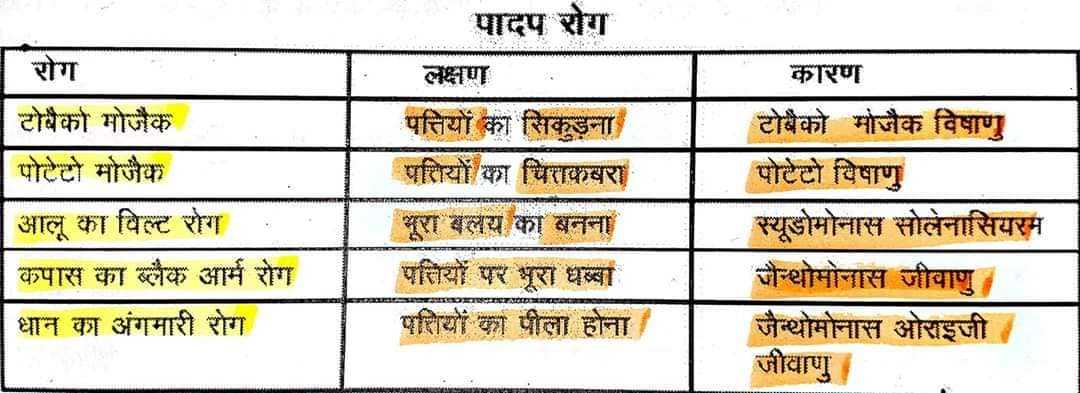 पादप रोग
रोग लक्षण कारण
टोबैको मोजैक पत्तियों का सिकुड़ना टोबैको मोजैक विषाणु
पोटेटो मोजैक पत्तियों का चित्तकबरा पोटेटो विषाणु
आलू का विल्ट रोग भूरा बलय का बनना स्यूडोमोनास सोलेनासियरम
कपास का ब्लैक आर्म रोग पत्तियों पर भूरा धब्बा जैन्थोमोनास जीवाणु
धान का अंगमारी रोग पत्तियों का पीला होना जैन्थोमोनास ओराइजी
जीवाणु